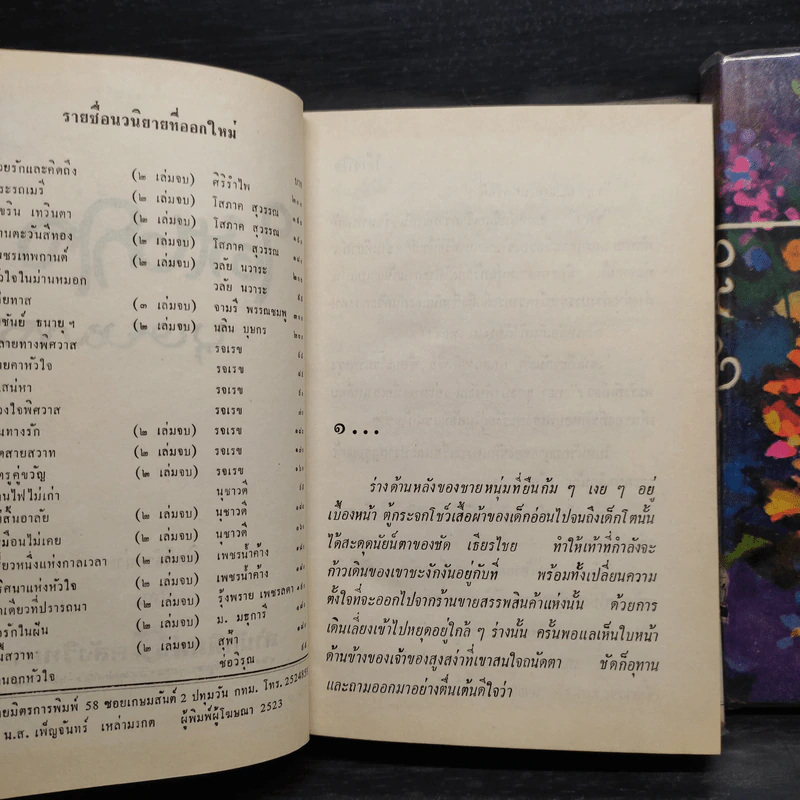 รายชื่อนวนิยายที่ออกใหม่
ยรักและคิดถึง (๒ เล่มจบ) ศิริรำไพ
ระรถเมรี (๒ เล่มจบ) โสภาค สุวรรณ
ขริน เทวินตา (๒ เล่มจบ) โสภาค สุวรรณ
านตะวันสีทอง (๒ เล่มจบ) โสภาค สุวรรณ
พชรเทพกานต์ (๒ เล่มจบ) วลัย นวาระ
ัวใจในม่านหมอก วลัย นวาระ
ทาส (๓ เล่มจบ) จามรี พรรณชมพู
ชันย์ ธนายุฯ (๒ เล่มจบ) นลิน บุษกร
ลายทางพิศวาส รจเรข
ายคาหัวใจ รจเรข
เสน่หา รจเรข
วงใจพิศวาส รจเรข
นทางรัก (๒ เล่มจบ) รจเรข
ตสายสวาท (๒ เล่มจบ) รจเรข
ตรูคู่ขวัญ (๒ เล่มจบ) รจเรข
านไฟไม่เก่า นุชาวดี
สิ้นอาลัย (๒ เล่มจบ) นุชาวดี
มือนไม่เคย (๒ เล่มจบ) นุชาวดี
ยวหนึ่งแห่งกาลเวลา (๒ เล่มจบ) เพชรน้ำค้าง
ริศนาแห่งหัวใจ (๒ เล่มจบ) เพชรน้ำค้าง
าเดียวที่ปรารถนา (๒ เล่มจบ) รุ้งพราย เพชรลดา
อรักในฝัน (๒ เล่มจบ) ม. มธุการี
สวาท (๒ เล่มจบ) สุฟ้า
นอกหัวใจ ช่อวิรุณ
ยมิตรการพิมพ์ 58 ซอยเกษมสันต์ 2 ปทุมวัน กทม. โทร.
น.ส. เพ็ญจันทร์ เหล่ามรกต ผู้พิมพ์ผู้โฆษณา 2523
๑...
ร่างด้านหลังของชายหนุ่มที่ยืนก้ม ๆ เงย ๆ อยู่
เบื้องหน้า ตู้กระจกโชว์เสื้อผ้าของเด็กอ่อนไปจนถึงเด็กโตนั้น
ได้สะดุดนัยน์ตาของชัด เธียรไชย ทำให้เท้าที่กำลังจะ
ก้าวเดินของเขาชะงักงันอยู่กับที่ พร้อมทั้งเปลี่ยนความ
ตั้งใจที่จะออกไปจากร้านขายสรรพสินค้าแห่งนั้น ด้วยการ
เดินเลี่ยงเข้าไปหยุดอยู่ใกล้ ๆ ร่างนั้น ครั้นพอแลเห็นใบหน้า
ด้านข้างของเจ้าของสูงสง่าที่เขาสนใจถนัดตา ชัดก็อุทาน
และถามออกมาอย่างตื่นเต้นดีใจว่า